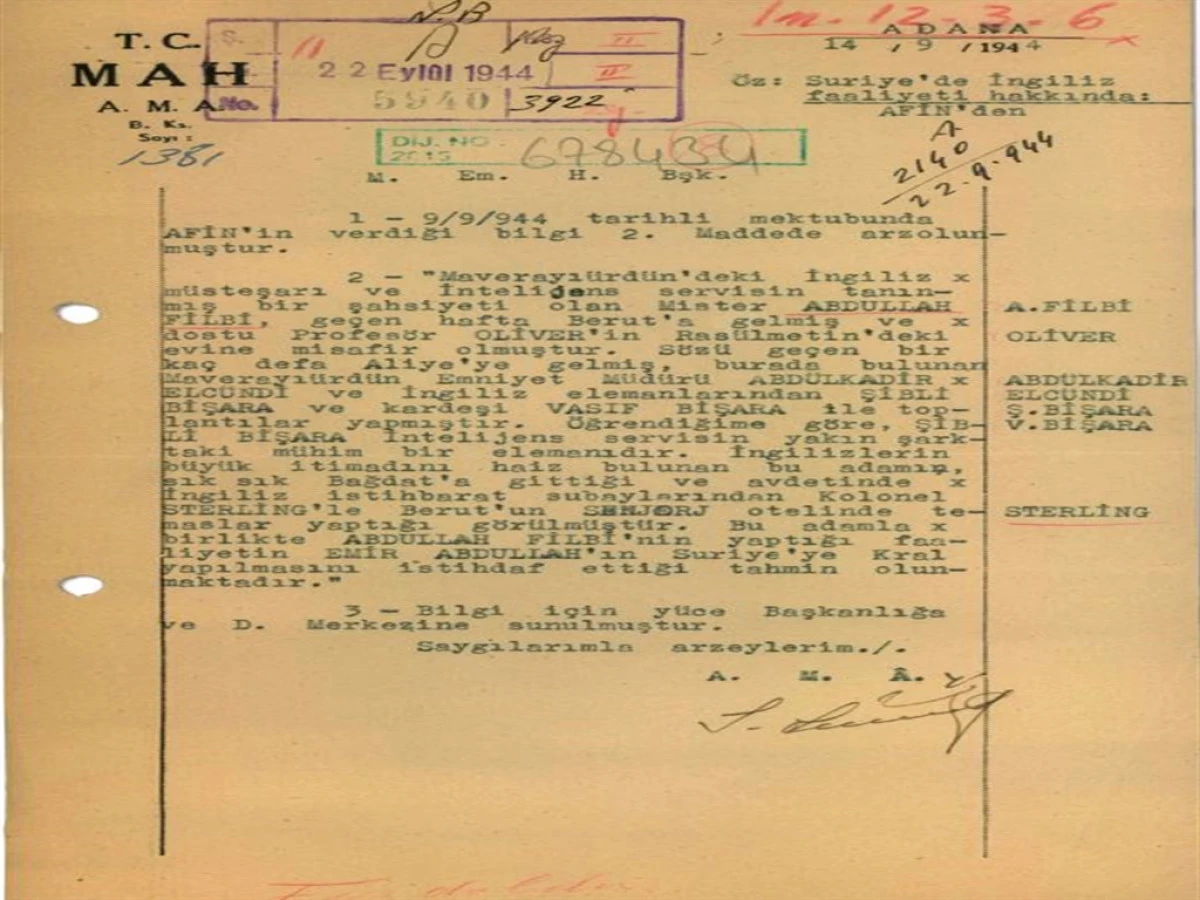 N.B
1m. 12-3-6
T. C.
MAH
A. M. A.
B. Ks.
Sayı :
1381
Ş.
No.
II
IV
22 Eylûl 1944
5940
3922
ADANA
14 / 9 / 1944
Öz: Suriye'de İngiliz
faaliyeti hakkında:
AFİN'den
A
2140
22-9-944
DİJ. NO
2015
678434
M. Em. H. Bşk.
1 - 9/9/944 tarihli mektubunda
AFİN'in verdiği bilgi 2. Maddede arzolun-
muştur.
2 - "Maverayıürdün'deki İngiliz x
müsteşarı ve İntelijens servisin tanın-
mış bir şahsiyeti olan Mister ABDULLAH
FİLBİ, geçen hafta Berut'a gelmiş ve x
dostu Profesör OLİVER'in Rasülmetin'deki
evine misafir olmuştur. Sözü geçen bir
kaç defa Aliye'ye gelmiş, burada bulunan
Maverayıürdün Emniyet Müdürü ABDÜLKADİR x
ELCÜNDİ ve İngiliz elemanlarından ŞİBLİ
BİŞARA ve kardeşi VASIF BİŞARA ile top-
lantılar yapmıştır. Öğrendiğime göre, ŞİB-
Lİ BİŞARA İntelijens servisin yakın şark-
taki mühim bir elemanıdır. İngilizlerin
büyük itimadını haiz bulunan bu adamın,
sık sık Bağdat'a gittiği ve avdetinde x
İngiliz istihbarat subaylarından Kolonel
STERLİNG'le Berut'un SENJORJ otelinde te-
maslar yaptığı görülmüştür. Bu adamla x
birlikte ABDULLAH FİLBİ'nin yaptığı faa-
liyetin EMİR ABDULLAH'ın Suriye'ye Kral
yapılmasını istihdaf ettiği tahmin olun-
maktadır."
A.FİLBİ
OLİVER
ABDÜLKADİR
ELCÜNDİ
Ş.BİŞARA
V.BİŞARA
STERLİNG
3 - Bilgi için yüce Başkanlığa
ve D. Merkezine sunulmuştur.
Saygılarımla arzeylerim./.
A. M. Â.